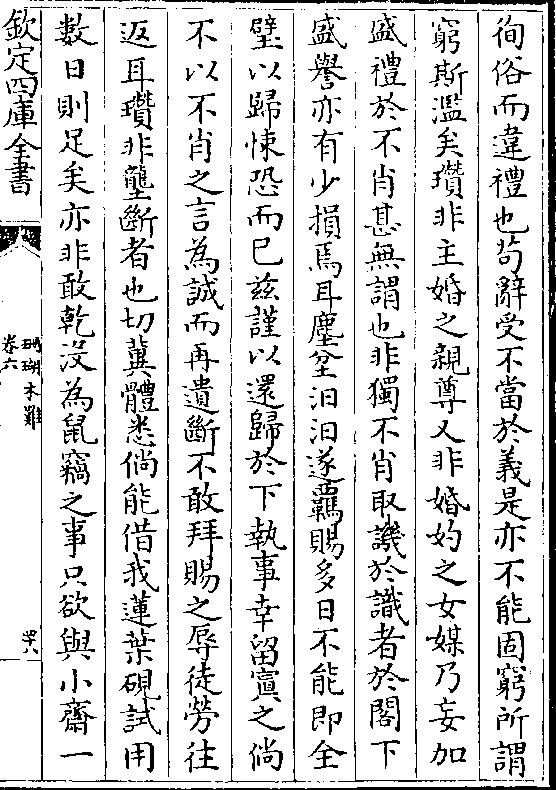 徇俗而違禮也苟辭受不當於義是亦不能固窮所謂
窮斯濫矣瓚非主婚之親尊又非婚妁之女媒乃妄加
盛禮於不肖甚無謂也非獨不肖取譏於識者於閣下
盛譽亦有少損焉耳塵坌汨汨遂羈賜多日不能即全
璧以歸悚恐而已兹謹以還歸於下執事幸留寘之倘
不以不肖之言為誠而再遺斷不敢拜賜之辱徒勞往
返耳瓚非壟斷者也切冀體悉倘能借我蓮葉硯試用
數日則足矣亦非敢乾没為鼠竊之事只欲與小齋一
欽定四庫全書
珊瑚木難
卷六